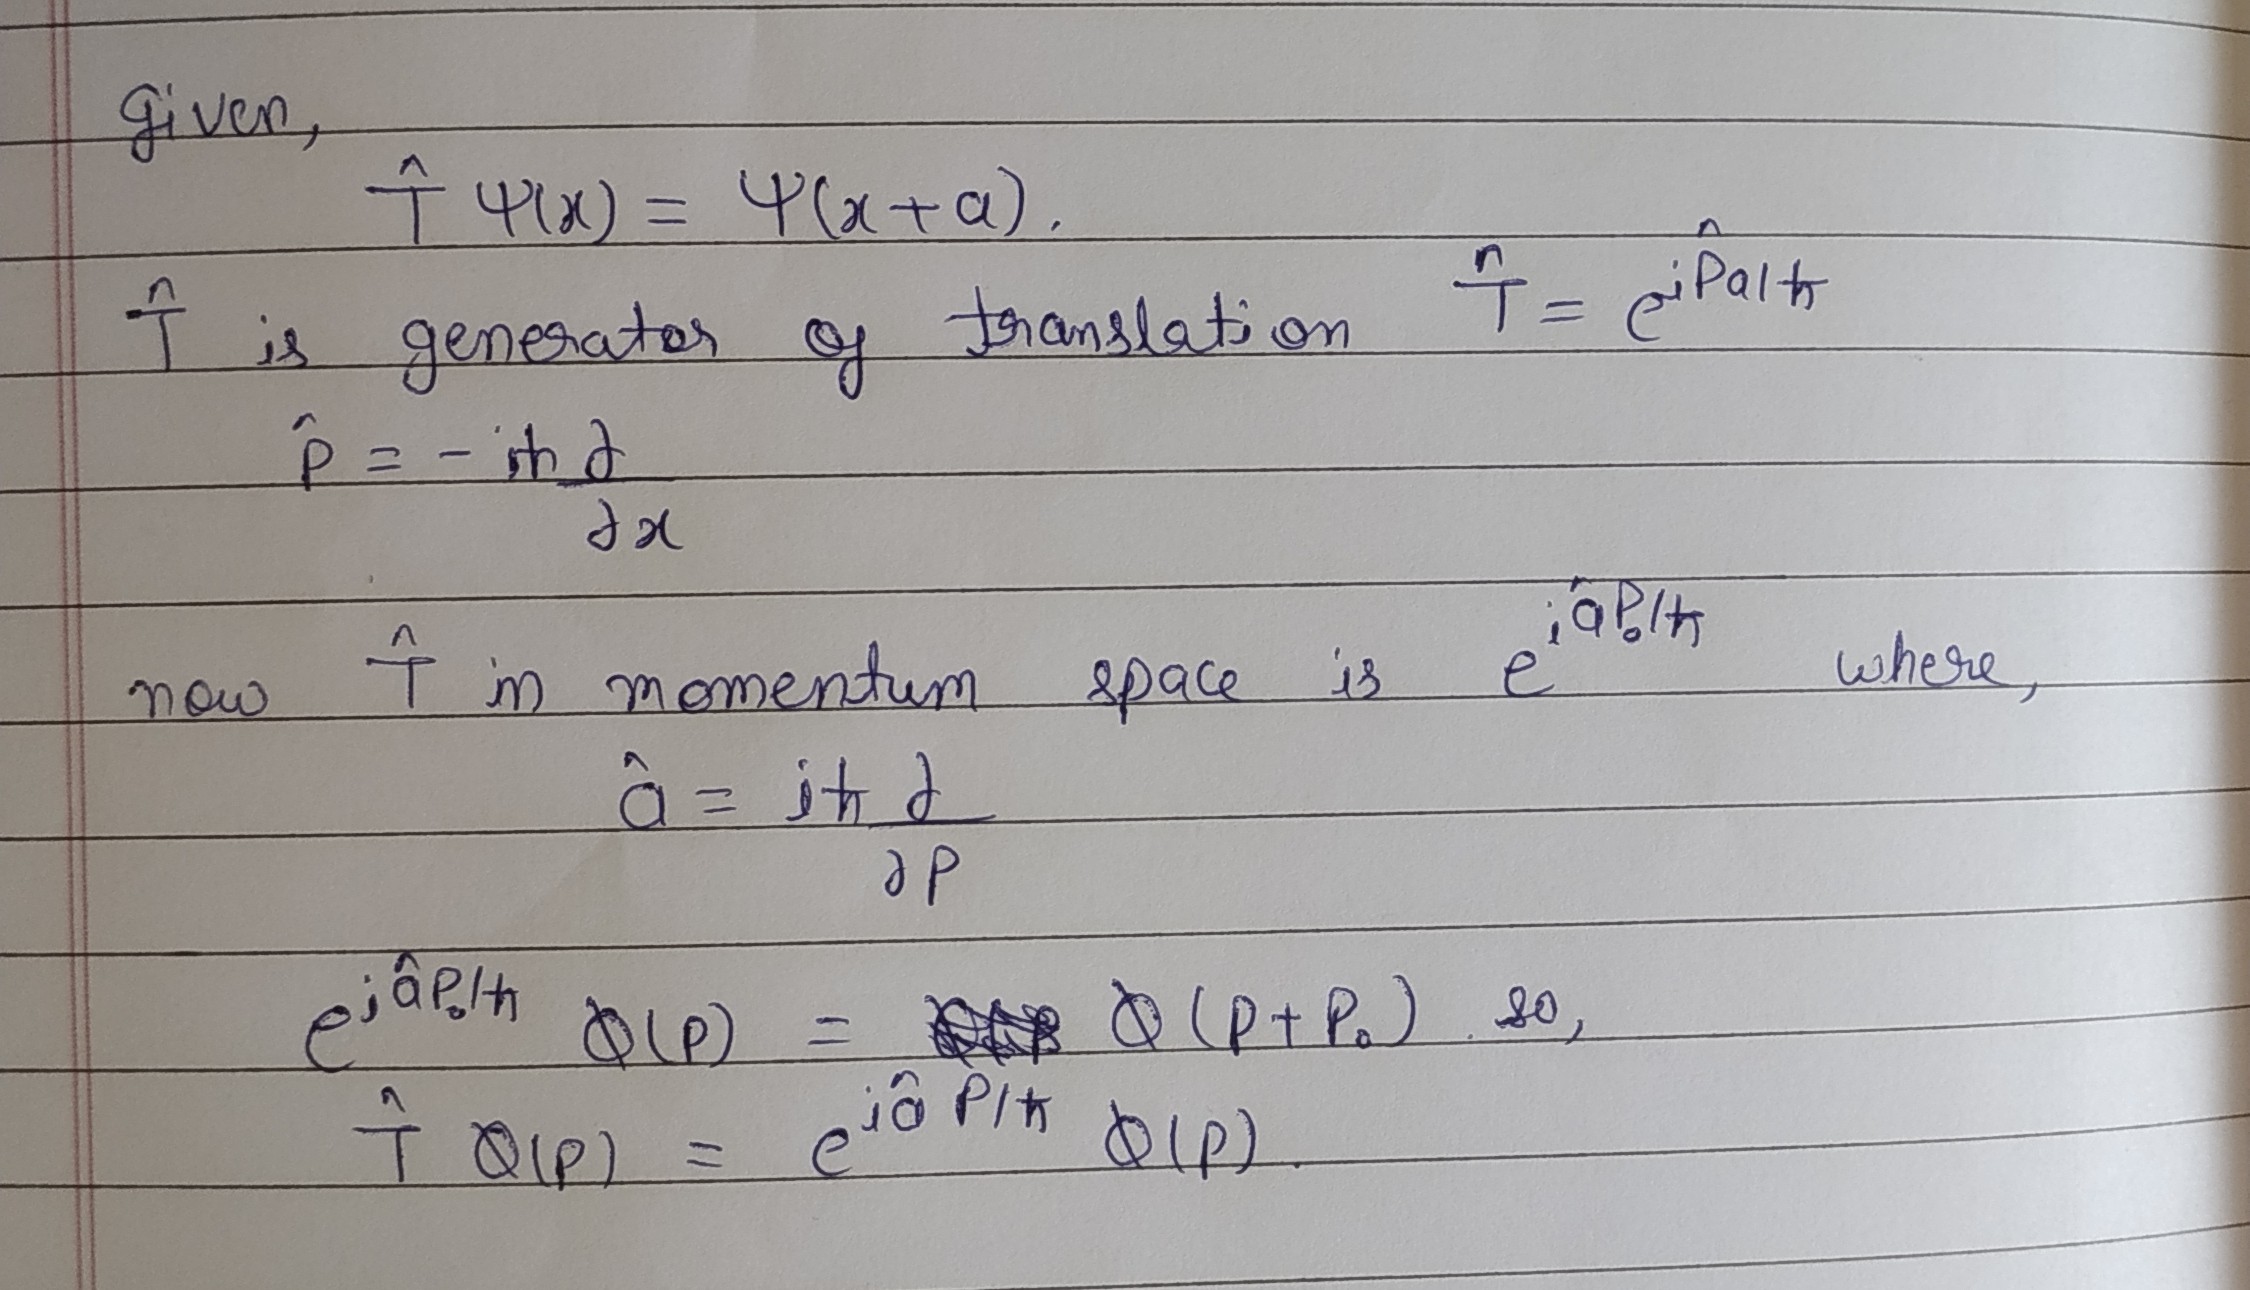 Given,
T̂ Ψ(x) = Ψ(x+a).
T̂ is generator of translation T̂ = e^{iP̂a/ħ}
p̂ = -iħ ∂/∂x
now T̂ in momentum space is e^{iâP₀/ħ} where,
â = iħ ∂/∂p
e^{iâP₀/ħ} Φ(p) = Φ(p+P₀). so,
T̂ Φ(p) = e^{iâP/ħ} Φ(p).